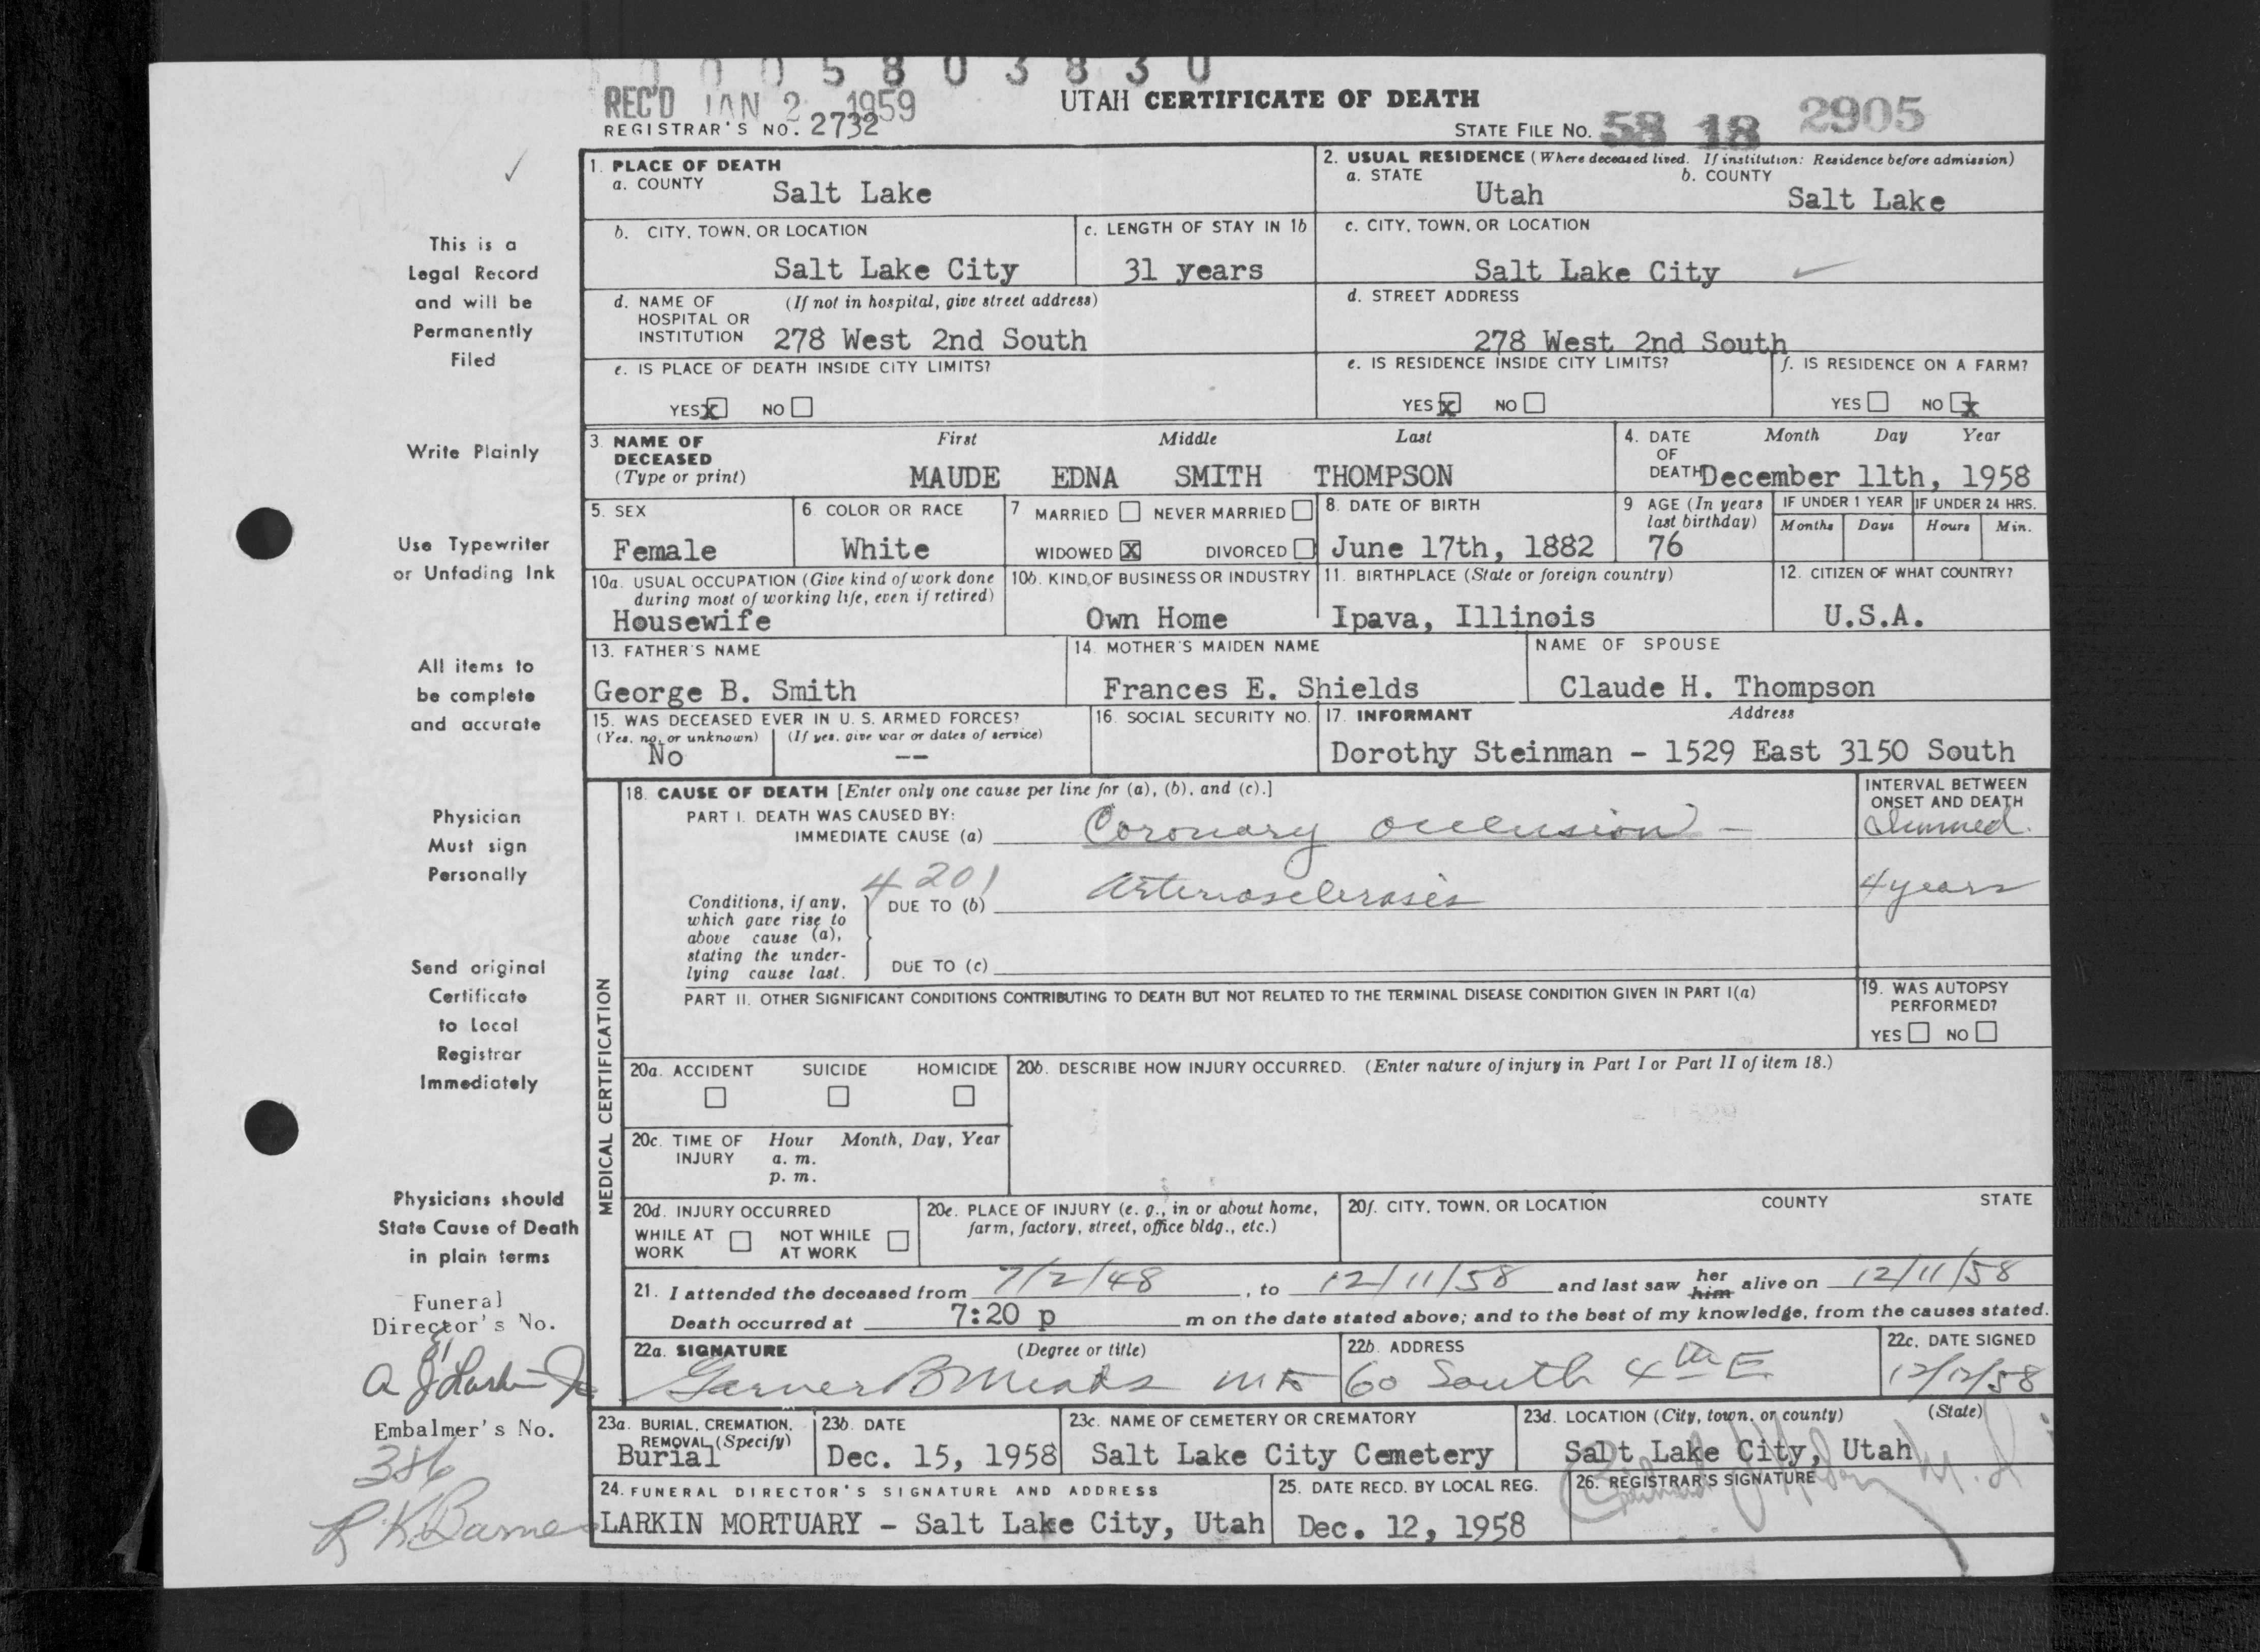 0 0 0 5 8 0 3 8 3 0
REC'D JAN 2 1959
UTAH CERTIFICATE OF DEATH
REGISTRAR'S NO. 2732
STATE FILE No. 58 18 2905
This is a
Legal Record
and will be
Permanently
Filed
Write Plainly
Use Typewriter
or Unfading Ink
All items to
be complete
and accurate
Physician
Must sign
Personally
Send original
Certificate
to Local
Registrar
Immediately
Physicians should
State Cause of Death
in plain terms
Funeral
Director's No.
Embalmer's No.
386
R K Barnes
1. PLACE OF DEATH
a. COUNTY Salt Lake
2. USUAL RESIDENCE (Where deceased lived. If institution: Residence before admission)
a. STATE Utah b. COUNTY Salt Lake
b. CITY, TOWN, OR LOCATION Salt Lake City
c. LENGTH OF STAY IN 1b 31 years
c. CITY, TOWN, OR LOCATION Salt Lake City
d. NAME OF HOSPITAL OR INSTITUTION (If not in hospital, give street address) 278 West 2nd South
d. STREET ADDRESS 278 West 2nd South
e. IS PLACE OF DEATH INSIDE CITY LIMITS?
YES X NO
e. IS RESIDENCE INSIDE CITY LIMITS?
YES X NO
f. IS RESIDENCE ON A FARM?
YES NO X
3. NAME OF DECEASED (Type or print) First Middle Last
MAUDE EDNA SMITH THOMPSON
4. DATE OF DEATH Month Day Year
December 11th, 1958
5. SEX Female
6. COLOR OR RACE White
7 MARRIED NEVER MARRIED
WIDOWED X DIVORCED
8. DATE OF BIRTH June 17th, 1882
9 AGE (In years last birthday) 76
IF UNDER 1 YEAR Months Days
IF UNDER 24 HRS. Hours Min.
10a. USUAL OCCUPATION (Give kind of work done during most of working life, even if retired)
Housewife
10b. KIND OF BUSINESS OR INDUSTRY Own Home
11. BIRTHPLACE (State or foreign country) Ipava, Illinois
12. CITIZEN OF WHAT COUNTRY? U.S.A.
13. FATHER'S NAME George B. Smith
14. MOTHER'S MAIDEN NAME Frances E. Shields
NAME OF SPOUSE Claude H. Thompson
15. WAS DECEASED EVER IN U. S. ARMED FORCES?
(Yes, no, or unknown) (If yes, give war or dates of service)
No --
16. SOCIAL SECURITY NO.
17. INFORMANT Address
Dorothy Steinman - 1529 East 3150 South
MEDICAL CERTIFICATION
18. CAUSE OF DEATH [Enter only one cause per line for (a), (b), and (c).]
PART I. DEATH WAS CAUSED BY:
IMMEDIATE CAUSE (a) Coronary occlusion -
INTERVAL BETWEEN ONSET AND DEATH
4201
Conditions, if any, which gave rise to above cause (a), stating the underlying cause last.
DUE TO (b) Arteriosclerosis 4 years
DUE TO (c)
PART II. OTHER SIGNIFICANT CONDITIONS CONTRIBUTING TO DEATH BUT NOT RELATED TO THE TERMINAL DISEASE CONDITION GIVEN IN PART I(a)
19. WAS AUTOPSY PERFORMED?
YES NO
20a. ACCIDENT SUICIDE HOMICIDE
20b. DESCRIBE HOW INJURY OCCURRED. (Enter nature of injury in Part I or Part II of item 18.)
20c. TIME OF INJURY Hour Month, Day, Year
a. m.
p. m.
20d. INJURY OCCURRED
WHILE AT WORK NOT WHILE AT WORK
20e. PLACE OF INJURY (e. g., in or about home, farm, factory, street, office bldg., etc.)
20f. CITY, TOWN, OR LOCATION COUNTY STATE
21. I attended the deceased from 7/2/48, to 12/11/58 and last saw her him alive on 12/11/58
Death occurred at 7:20 p m on the date stated above; and to the best of my knowledge, from the causes stated.
22a. SIGNATURE (Degree or title)
Garner B Meads MD
22b. ADDRESS 60 South 4th E
22c. DATE SIGNED 12/12/58
23a. BURIAL, CREMATION, REMOVAL (Specify) Burial
23b. DATE Dec. 15, 1958
23c. NAME OF CEMETERY OR CREMATORY Salt Lake City Cemetery
23d. LOCATION (City, town, or county) (State) Salt Lake City, Utah
24. FUNERAL DIRECTOR'S SIGNATURE AND ADDRESS
LARKIN MORTUARY - Salt Lake City, Utah
25. DATE RECD. BY LOCAL REG. Dec. 12, 1958
26. REGISTRAR'S SIGNATURE